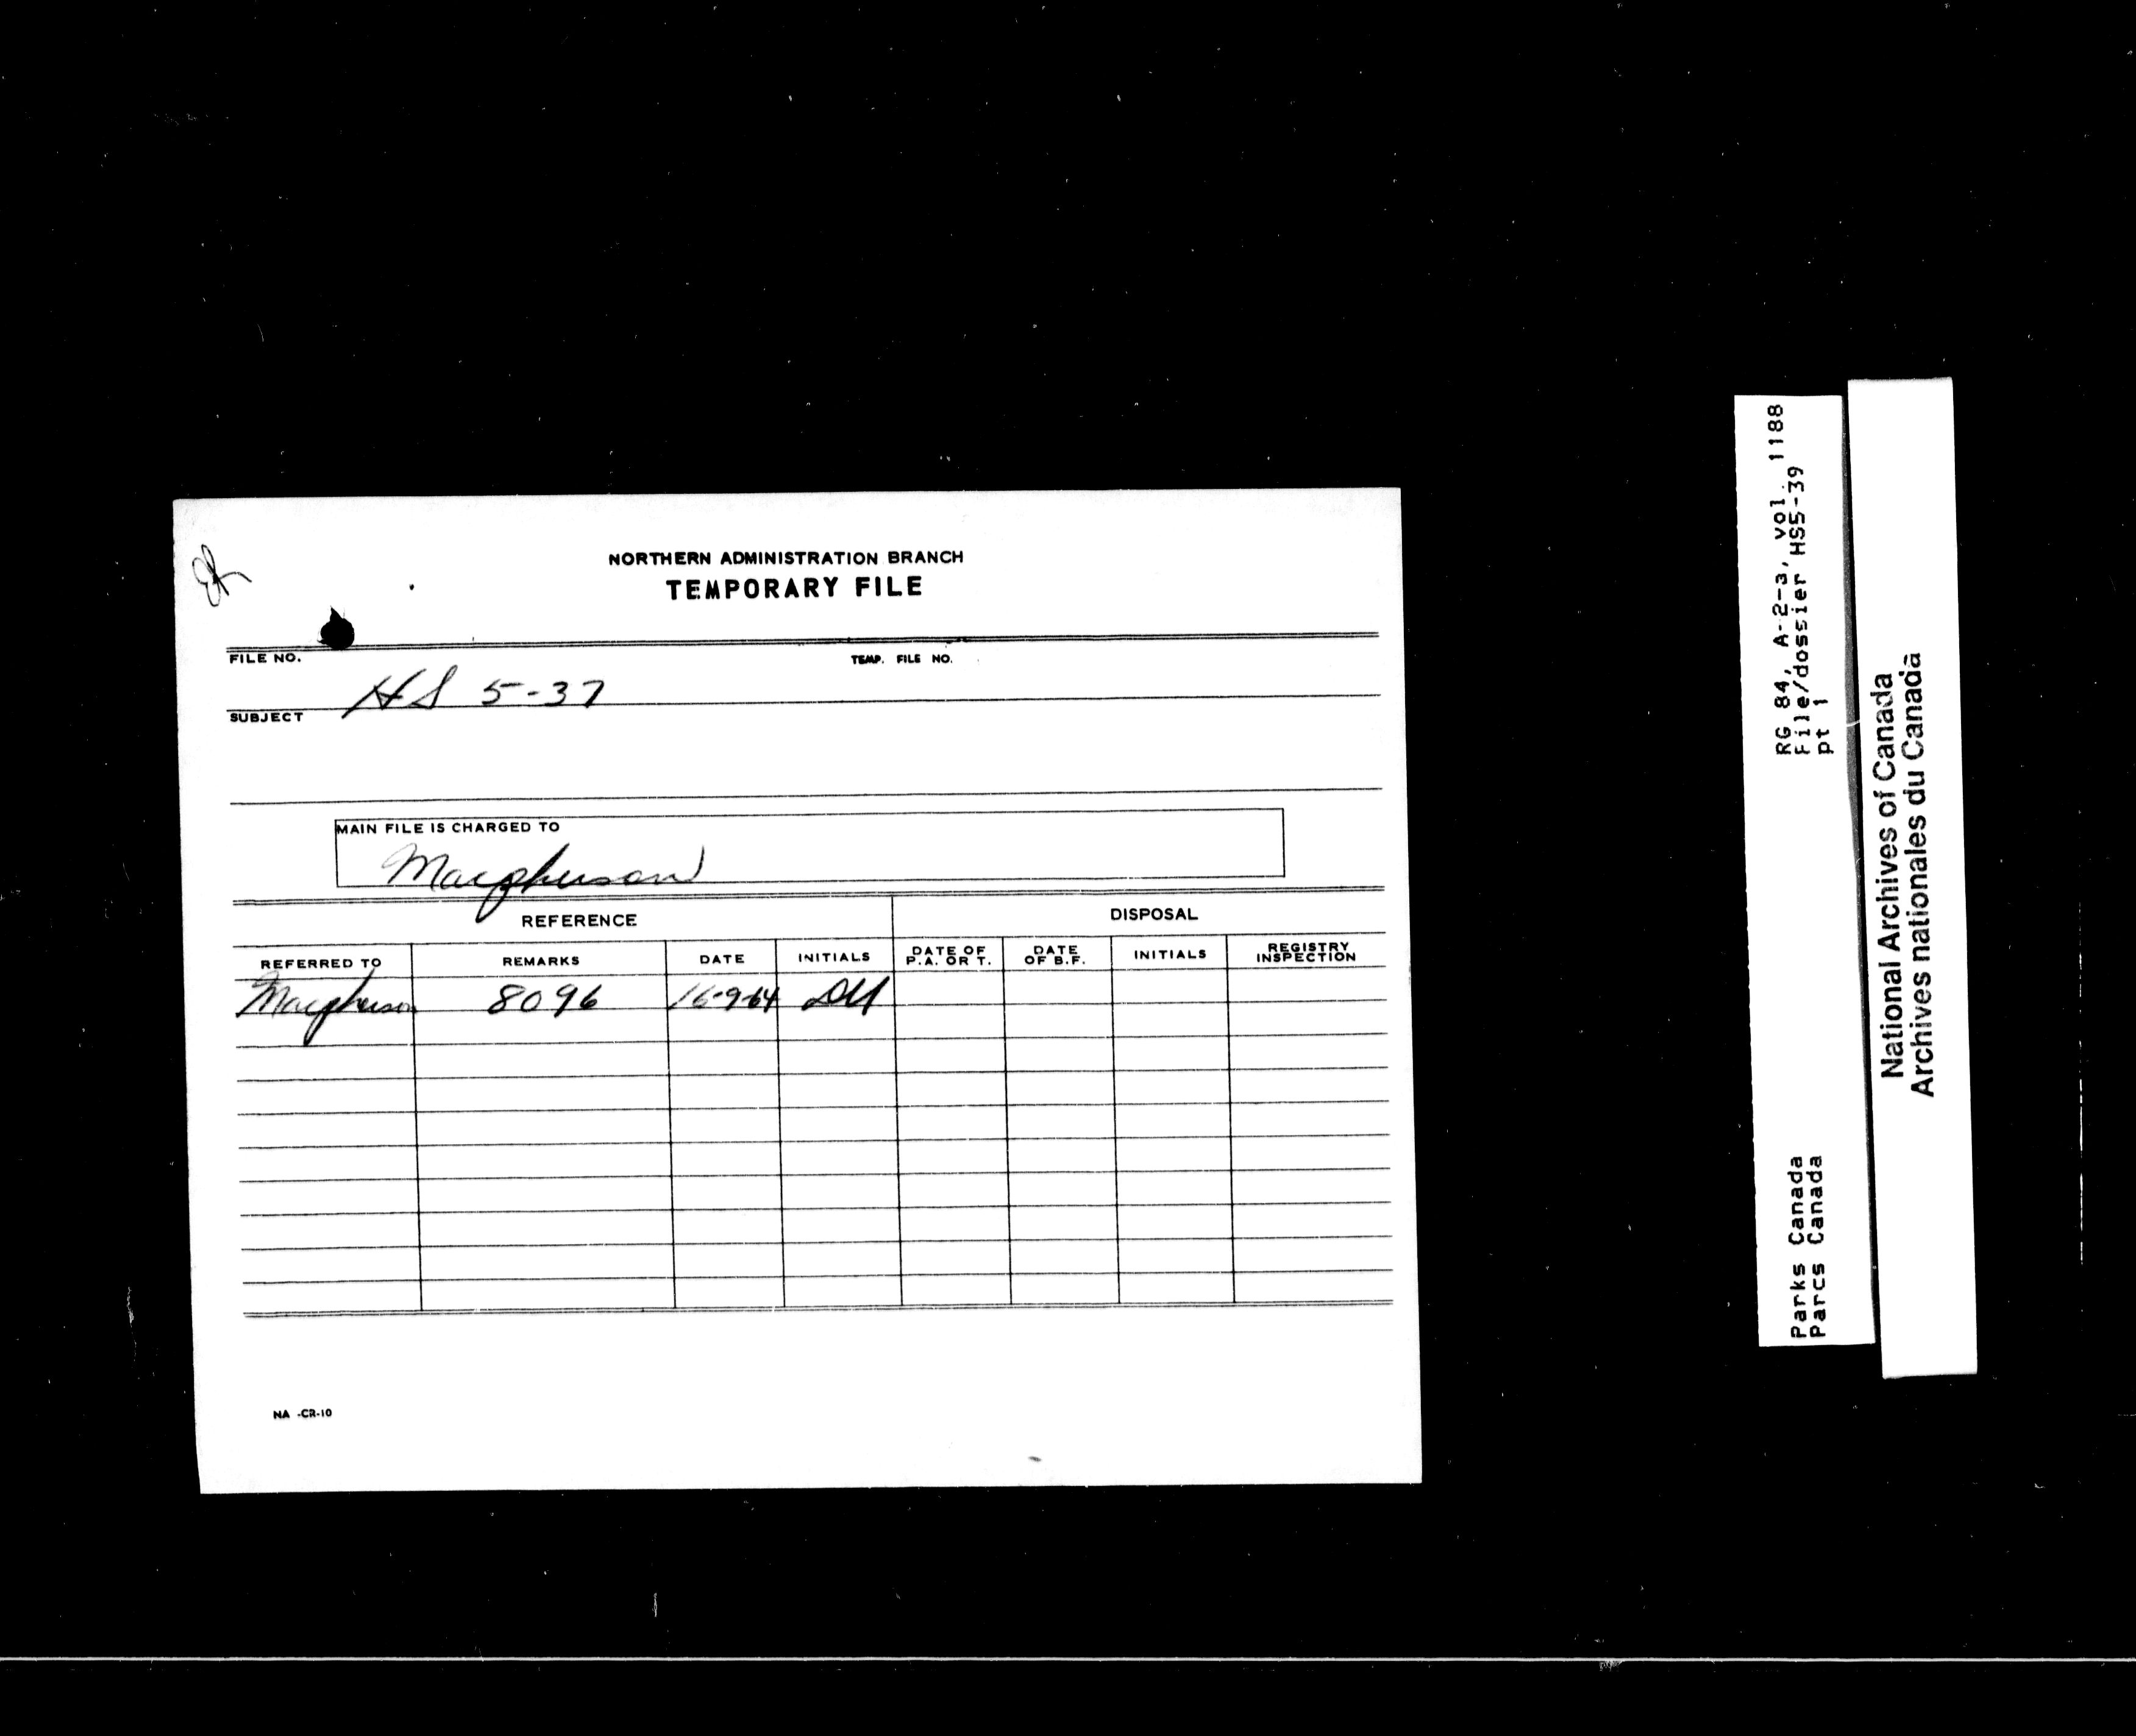 NORTHERN ADMINISTRATION BRANCH
TEMPORARY FILE
FILE NO. HS 5-37 TEMP. FILE NO.
SUBJECT
MAIN FILE IS CHARGED TO
Macpherson
REFERENCE DISPOSAL
REFERRED TO REMARKS DATE INITIALS DATE OF P.A. OR T. DATE OF B.F. INITIALS REGISTRY INSPECTION
Macpherson 8096 16-9-64
NA -CR-10
Parks Canada RG 84, A-2-3, vol. 1188
Parcs Canada File/dossier HS5-39
pt 1
National Archives of Canada
Archives nationales du Canada